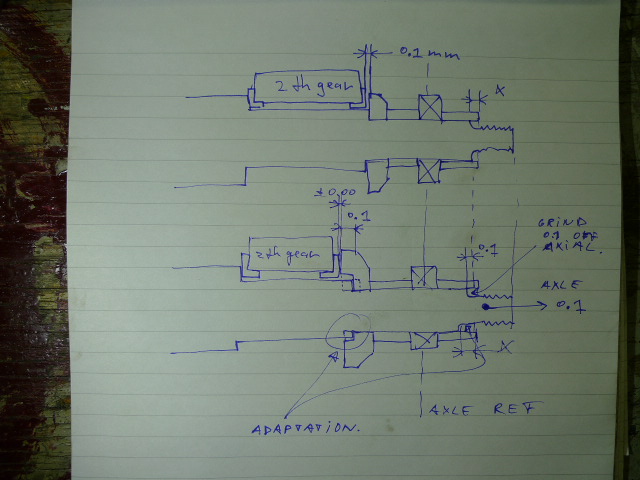 0.1 mm
2th gear
X
± 0.00
0.1
2th gear
0.1
GRIND
0.1 OFF
AXIAL.
AXLE
0.1
X
A
AXLE REF
ADAPTATION.